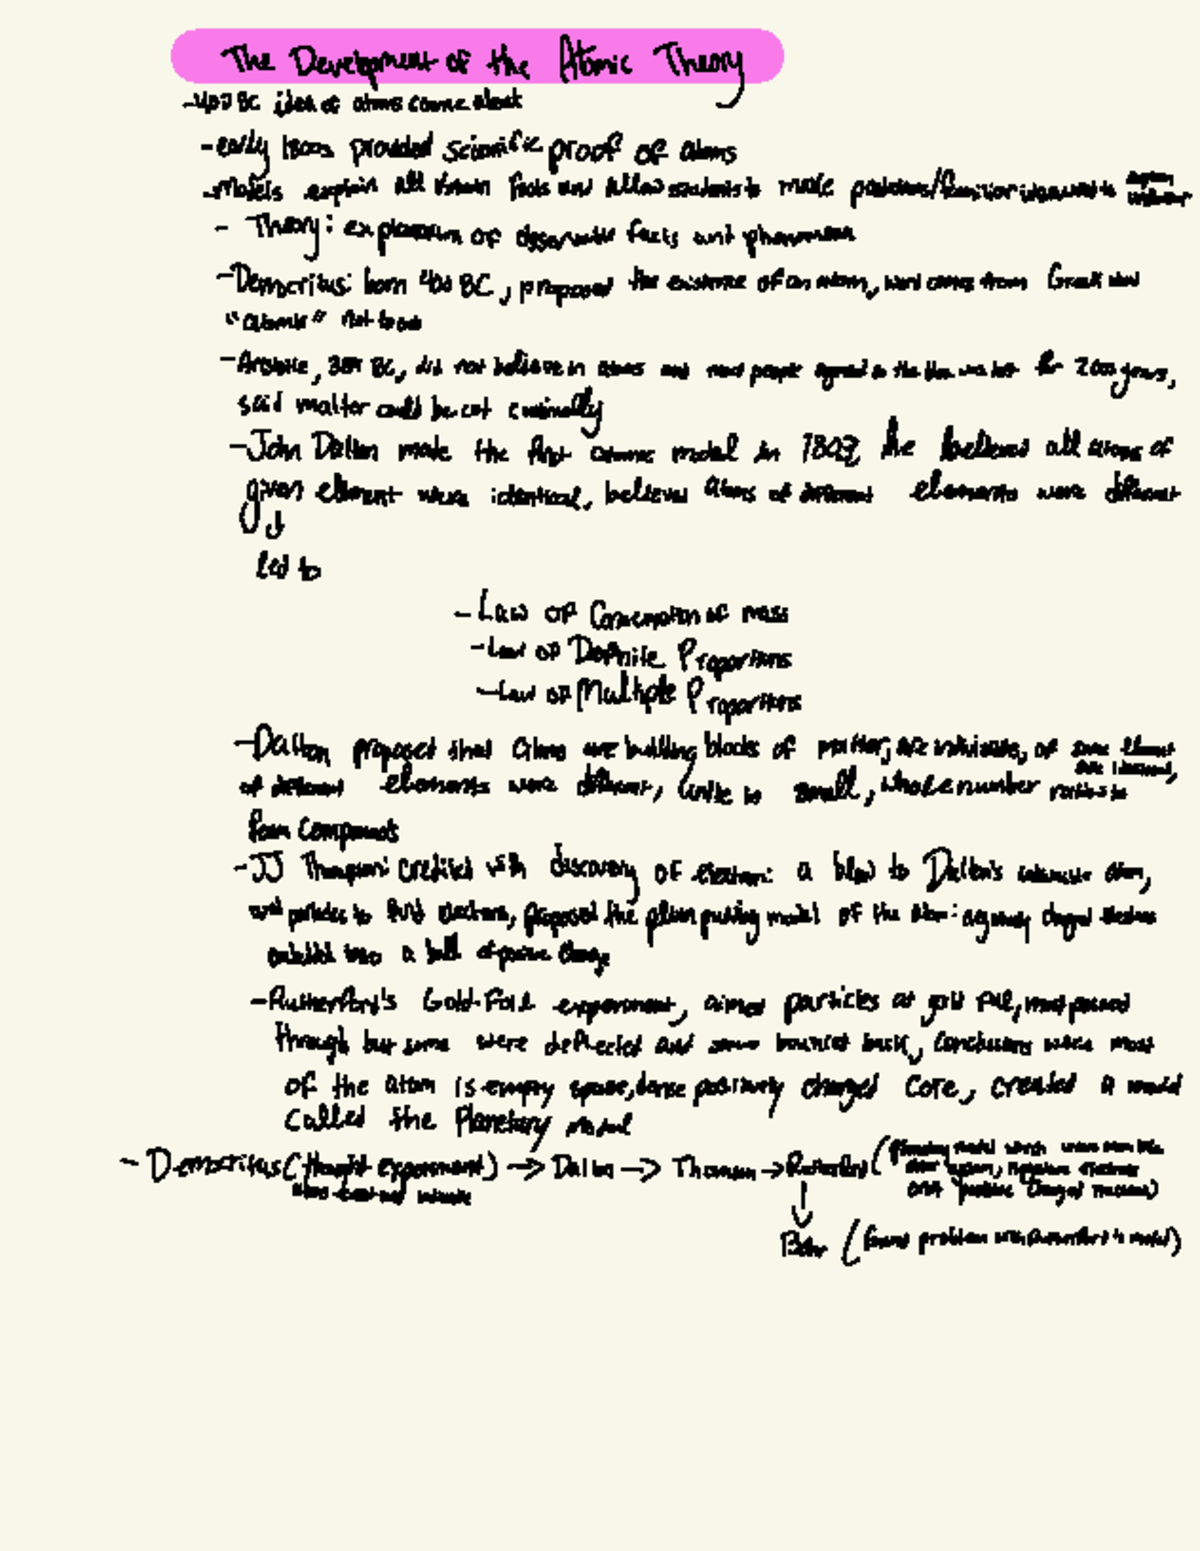 The Development of the Atomic Theory
- BC idea of atoms came about
- early 1800s provided scientific proof of atoms
- Models explain all known facts and allow to make
- Theory: explanation of observable facts and phenomena
- Democritus: born 400 BC, proposed the existence of an atom, word comes from Greek word
"atomic" not to cut
- BC, did not believe in atoms and most people agreed for 2000 years,
said matter could be cut continually
- John Dalton made the first atomic model in 1803, he believed all atoms of
given element were identical, believed atoms of different elements were different
led to
- Law of Conservation of mass
- Law of Definite Proportions
- Law of Multiple Proportions
- Dalton proposed that atoms are building blocks of matter, are indivisible, of same element
are identical,
of different elements were different, unite in small, whole number ratios to
form compounds
- JJ Thompson: credited with discovery of electron: a blow to Dalton's atom,
proposed the plum pudding model of the atom: charged electrons
into a ball of positive charge
- Rutherford's Gold-Foil experiment, aimed particles at gold foil, most passed
through but some were deflected and some bounced back, conclusions were most
of the atom is empty space, dense positively charged core, created a model
called the Planetary Model
- Democritus (thought experiment) → Dalton → Thomson → Rutherford (Planetary model which
solar system, negative electrons
orbit positive charged nucleus)
Bohr (found problem with Rutherford's model)